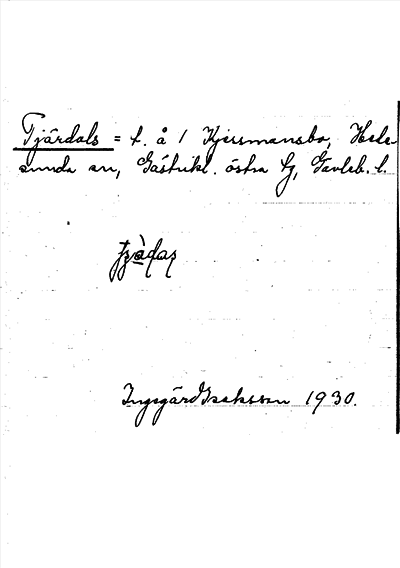 Tjärdals = t. å / Kjersmansbo, Hede-
sunda sn, Gästrikl. östra tg, Gävleb. l.
Ingegärd Isaksson 1930.